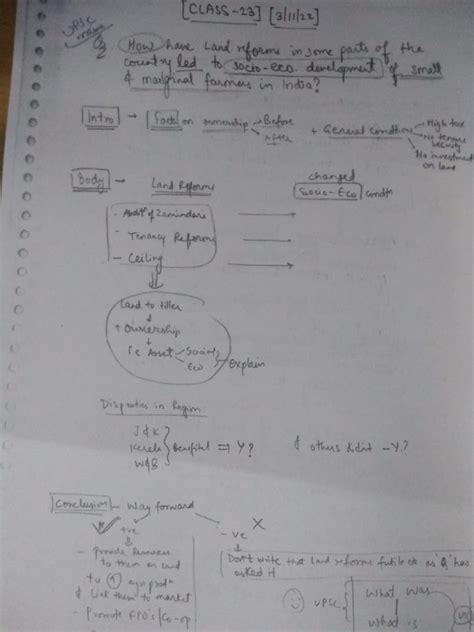 [CLASS-23] [3/11/22]
UPSC
mains
Q How have Land reforms in some parts of the
country led to socio-eco. development of small
& marginal farmers in India?
Intro → Facts on ownership → Before
→ After
+ General Condtions → High tax
→ No tenure
security
→ No investment
on land
Body → Land Reforms
changed
Socio-Eco condtn
- Abolitⁿ of Zamindari →
- Tenancy Reforms →
- Ceiling →
Land to tiller
↓
↑ Ownership
↓
i.e Asset Social
Eco
Explain
Disparities in Region
J & K
Kerala
W & B
Benefited ⇒ Y?
& others didnt - Y.?
Conclusion - Way forward
+ve
- ve X
- Provide Resources
to them on land
to ↑ agri prodⁿ
& link them to market
- Promote FPO's/Co-op
Don't write that land reforms futile etc as 'Q' has
asked it
UPSC
What was
What is